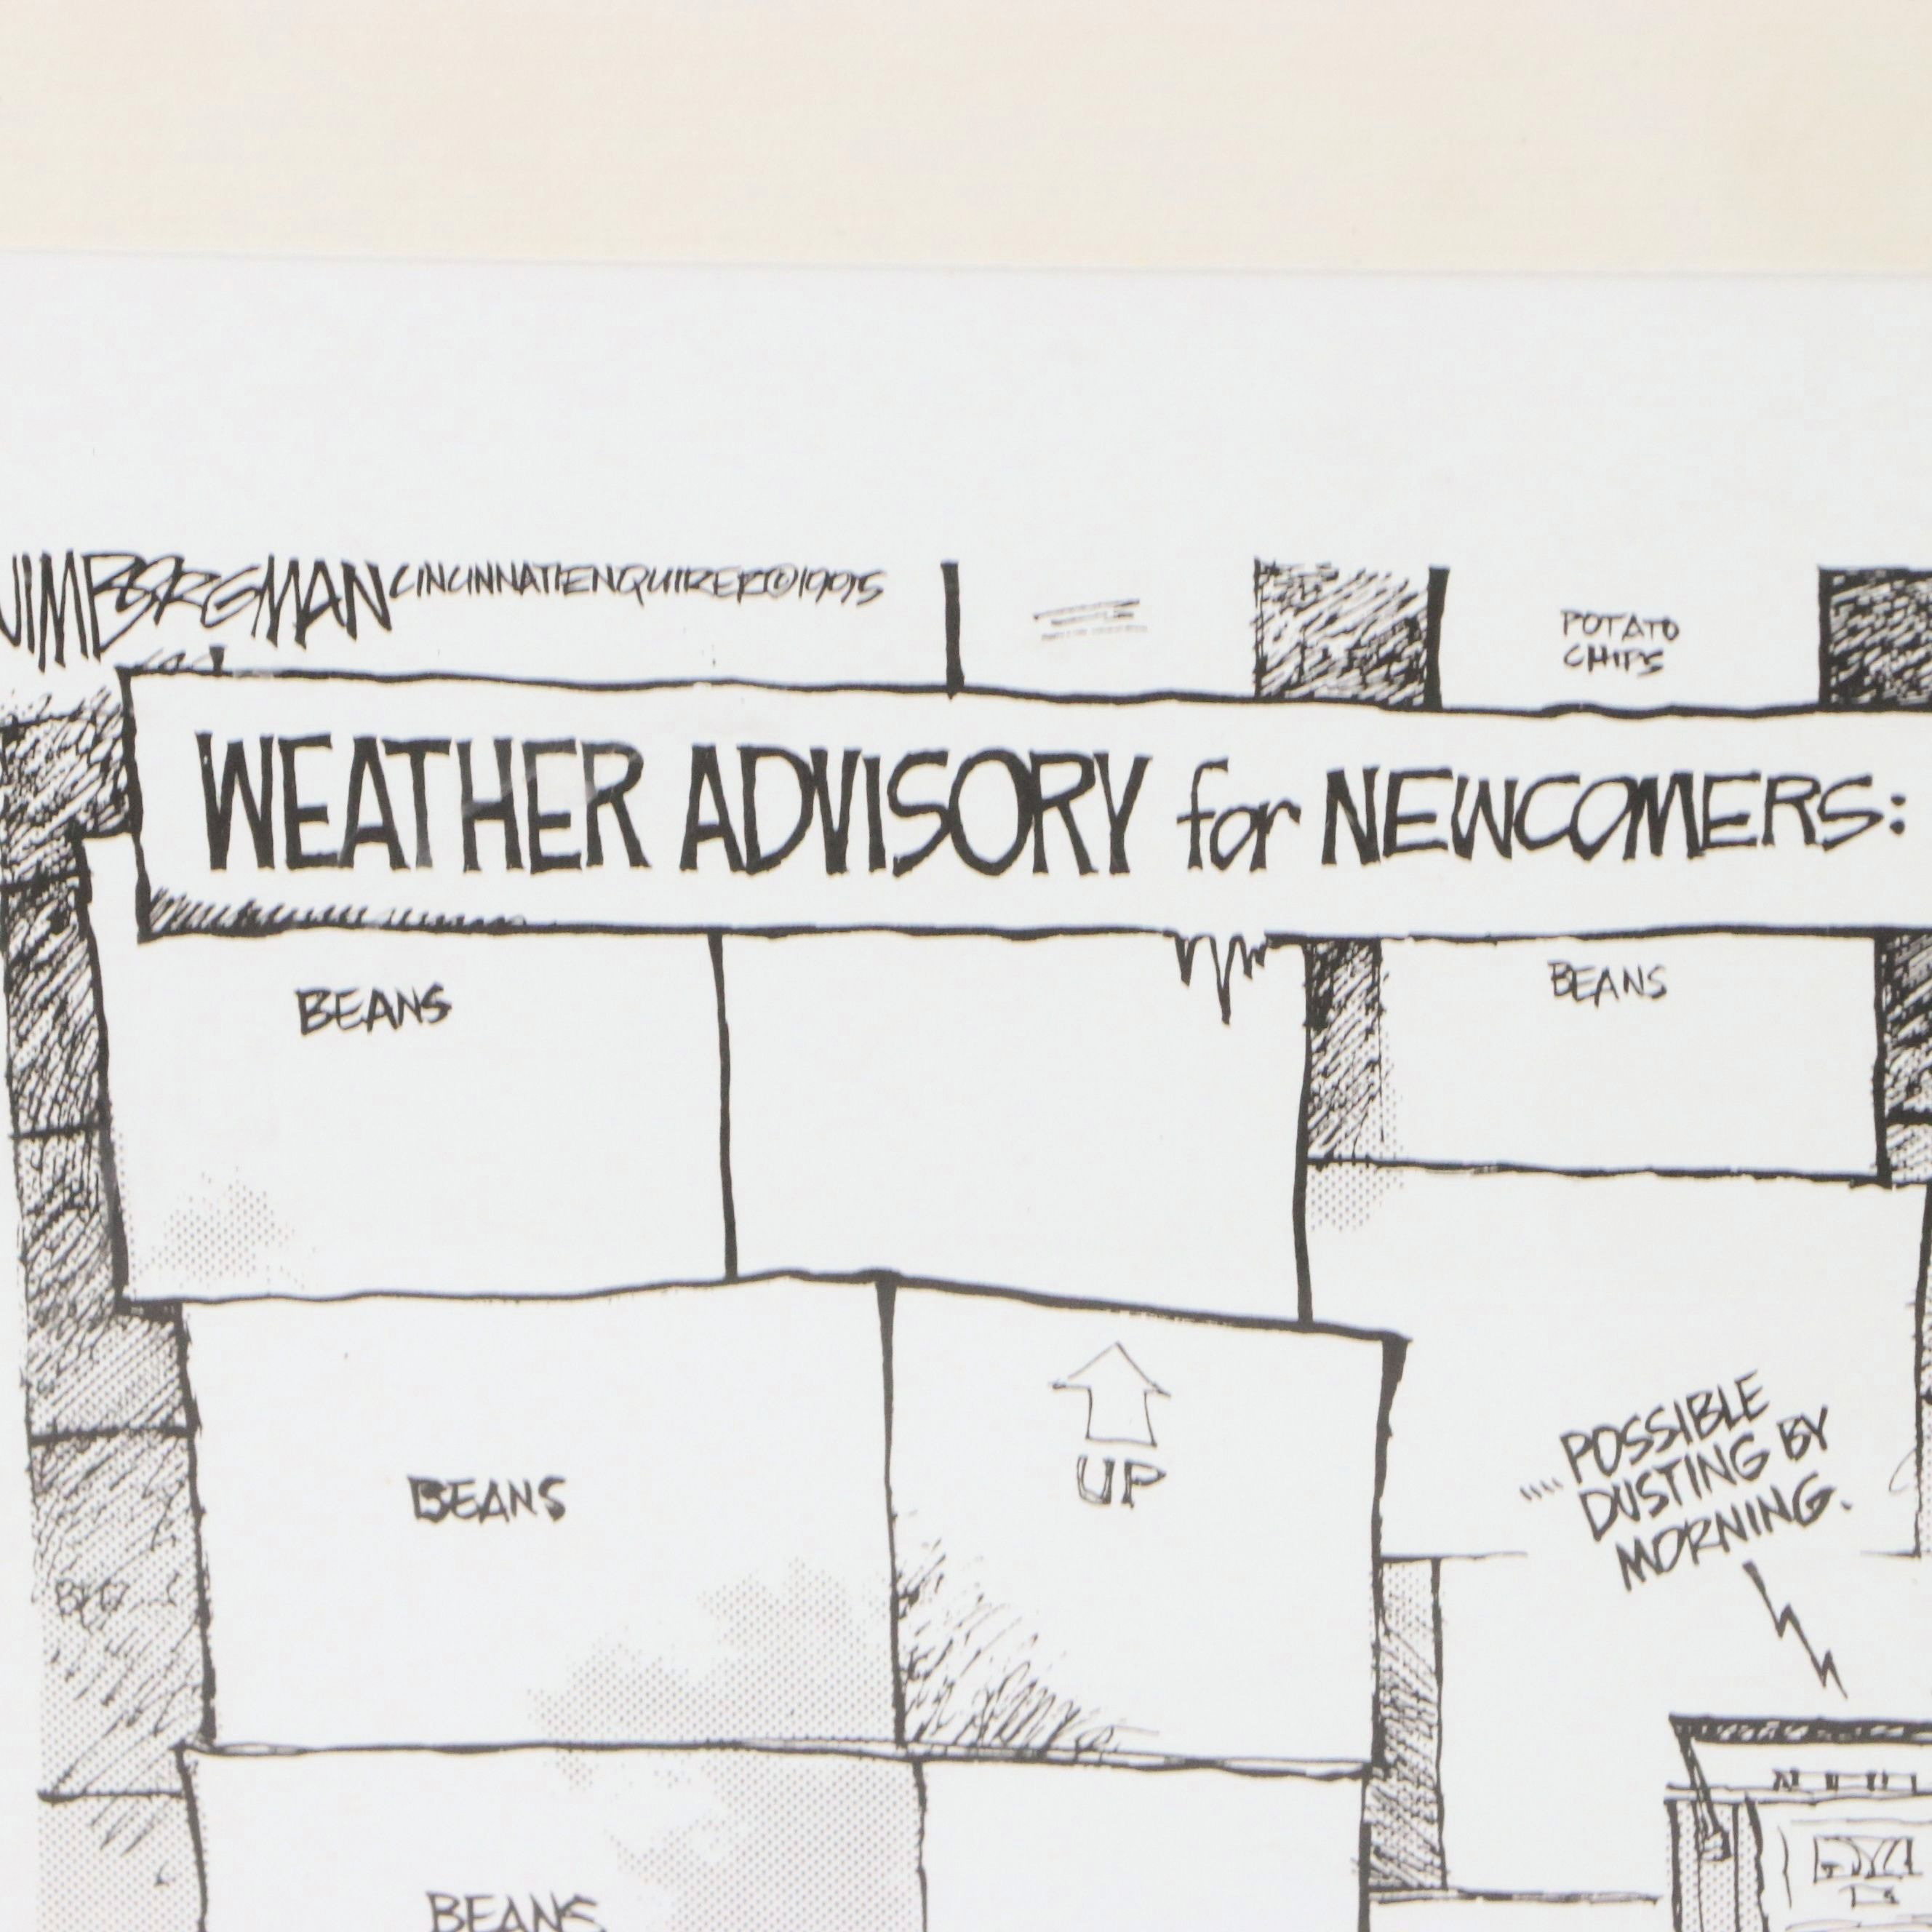 JIM BORGMAN CINCINNATI ENQUIRER ©1995
POTATO
CHIPS
WEATHER ADVISORY for NEWCOMERS:
BEANS
BEANS
UP
BEANS
....POSSIBLE
DUSTING BY
MORNING.
BEANS